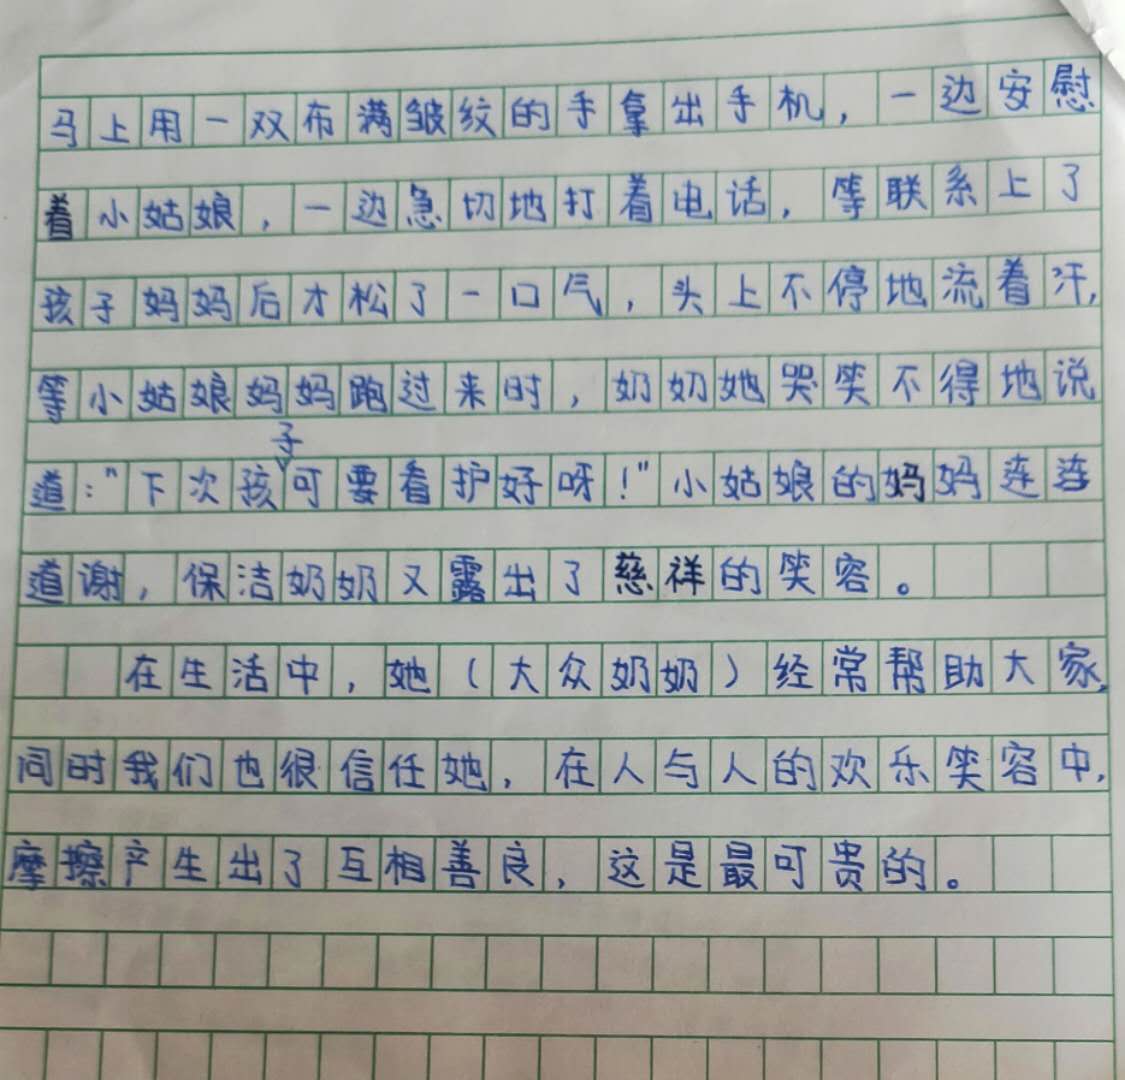 马上用一双布满皱纹的手拿出手机，一边安慰
着小姑娘，一边急切地打着电话，等联系上了
孩子妈妈后才松了一口气，头上不停地流着汗，
等小姑娘妈妈跑过来时，奶奶她哭笑不得地说
道："下次孩子可要看护好呀！"小姑娘的妈妈连连
道谢，保洁奶奶又露出了慈祥的笑容。
在生活中，她（大众奶奶）经常帮助大家，
同时我们也很信任她，在人与人的欢乐笑容中，
摩擦产生出了互相善良，这是最可贵的。